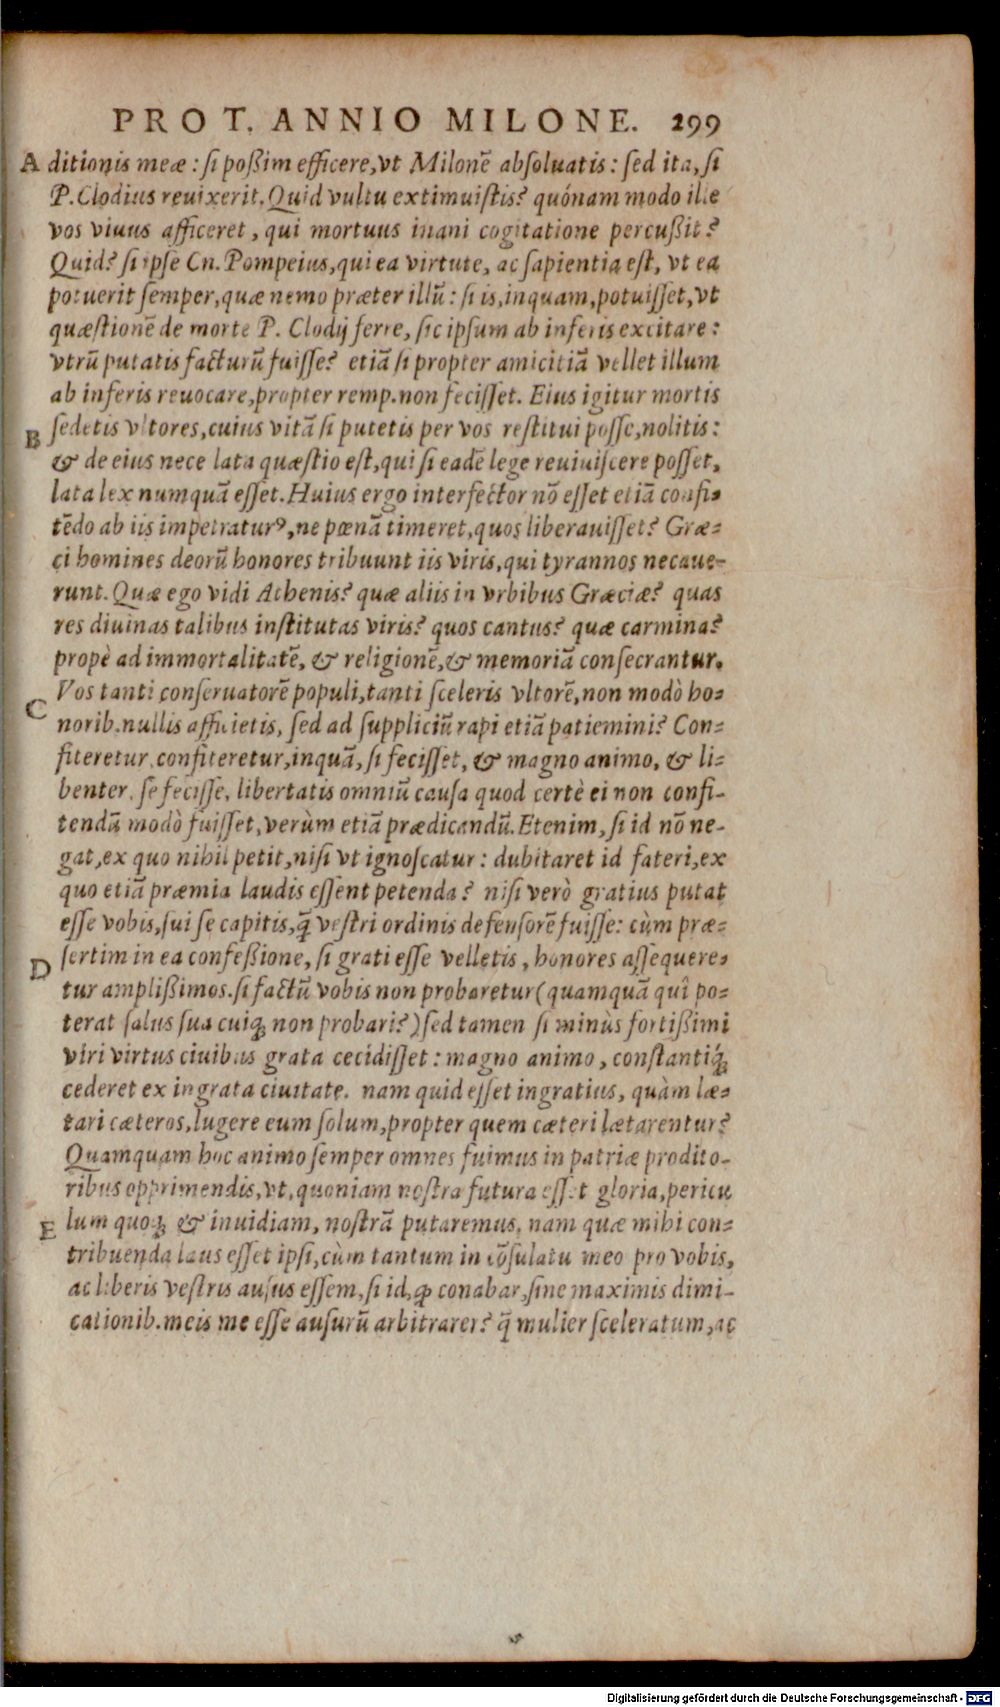 PRO T. ANNIO MILONE. 299
A ditionis meæ : si poßim efficere, vt Milonē absoluatis : sed ita, si
P. Clodius reuixerit. Quid vultu extimuistis? quónam modo ille
vos viuus afficeret, qui mortuus inani cogitatione percußit?
Quid? si ipse Cn. Pompeius, qui ea virtute, ac sapientia est, vt ea
potuerit semper, quæ nemo præter illū : si is, inquam, potuisset, vt
quæstionē de morte P. Clodij ferre, sic ipsum ab inferis excitare :
vtrū putatis facturū fuisse? etiā si propter amicitiā vellet illum
ab inferis reuocare, propter remp. non fecisset. Eius igitur mortis
B sedetis vltores, cuius vitā si putetis per vos restitui posse, nolitis :
& de eius nece lata quæstio est, qui si eadē lege reuiuiscere posset,
lata lex numquā esset. Huius ergo interfector nō esset etiā confi-
tēdo ab iis impetraturꝰ, ne pœnā timeret, quos liberauisset? Græ-
ci homines deorū honores tribuunt iis viris, qui tyrannos necaue-
runt. Quæ ego vidi Athenis? quæ aliis in vrbibus Græciæ? quas
res diuinas talibus institutas viris? quos cantus? quæ carmina?
propè ad immortalitatē, & religionē, & memoriā consecrantur.
C Vos tanti conseruatorē populi, tanti sceleris vltorē, non modò ho-
norib. nullis afficietis, sed ad suppliciū rapi etiā patiemini? Con-
fiteretur, confiteretur, inquā, si fecisset, & magno animo, & li-
benter, se fecisse, libertatis omniū causa quod certè ei non confi-
tendū modò fuisset, verùm etiā prædicandū. Etenim, si id nō ne-
gat, ex quo nihil petit, nisi vt ignoscatur : dubitaret id fateri, ex
quo etiā præmia laudis essent petenda? nisi verò gratius putat
esse vobis, sui se capitis, q̄ vestri ordinis defensorē fuisse: cùm præ-
D sertim in ea confeßione, si grati esse velletis, honores assequere-
tur amplißimos. si factū vobis non probaretur (quamquā quî po-
terat salus sua cuiq; non probari?) sed tamen si minùs fortißimi
viri virtus ciuibus grata cecidisset : magno animo, constantiq́;
cederet ex ingrata ciuitate. nam quid esset ingratius, quàm læ-
tari cæteros, lugere eum solum, propter quem cæteri lætarentur?
Quamquam hoc animo semper omnes fuimus in patriæ prodito-
ribus opprimendis, vt, quoniam nostra futura esset gloria, pericu
E lum quoq; & inuidiam, nostrā putaremus. nam quæ mihi con-
tribuenda laus esset ipsi, cùm tantum in cōsulatu meo pro vobis,
ac liberis vestris ausus essem, si id, ꝙ conabar, sine maximis dimi-
cationib. meis me esse ausurū arbitrarer? q̄ mulier sceleratum, ac
Digitalisierung gefördert durch die Deutsche Forschungsgemeinschaft - DFG